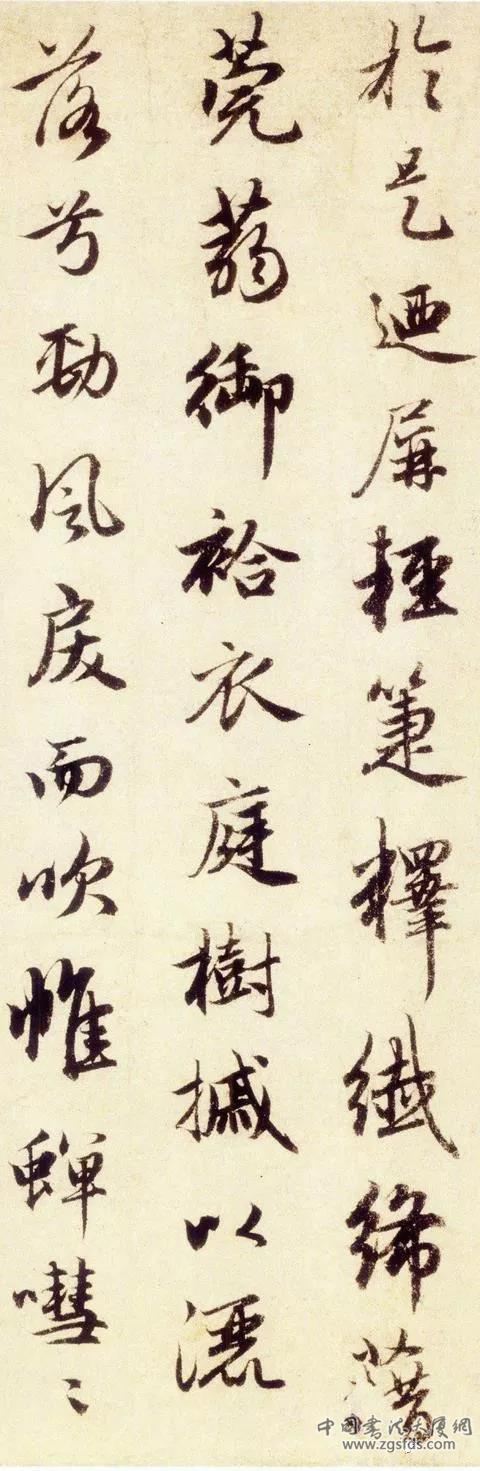 於是迺屏輕箑釋纖絺藉
莞蒻御袷衣庭樹摵以灑
落兮勁風戾而吹帷蟬嘒〻
中國書法大廈網
www.zgsfds.com